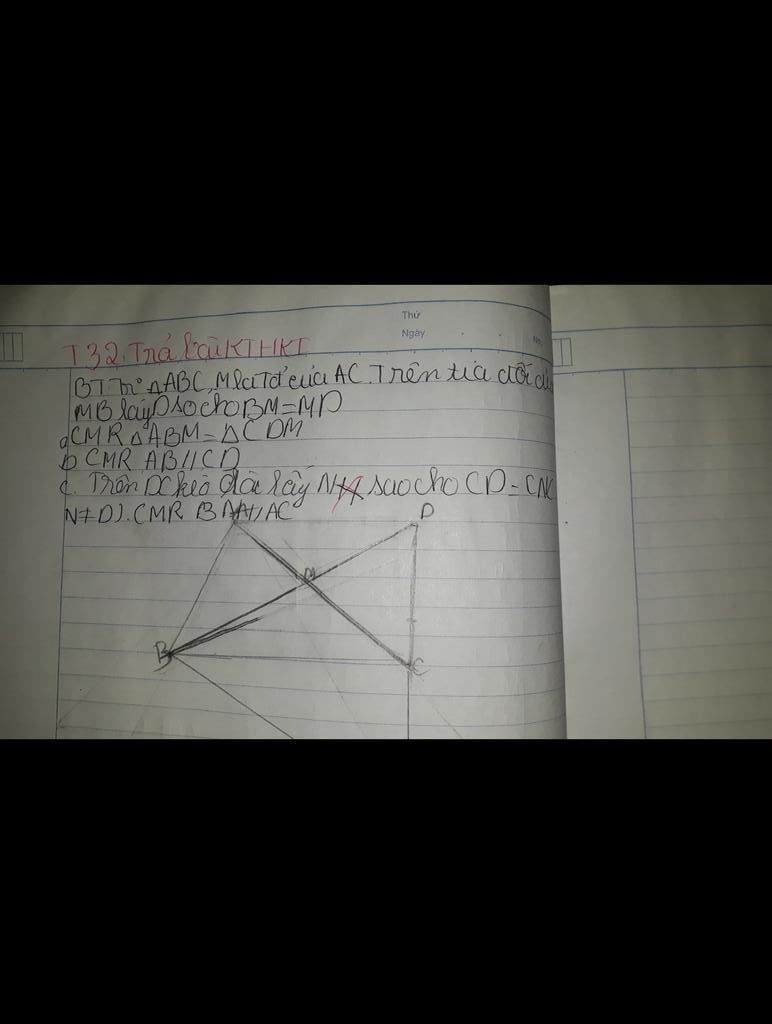 Thứ
Ngày
No.
T32. Trả bài KTHKI
BT Δ ABC, M là Tđ của AC. Trên tia đối
MB lấy D sao cho BM = MD
a CMR Δ ABM = Δ CDM
b CMR AB // CD
c. Trên DC kéo dài lấy N sao cho CD = CN
N ≠ D). CMR B // AC
D
M
B
C